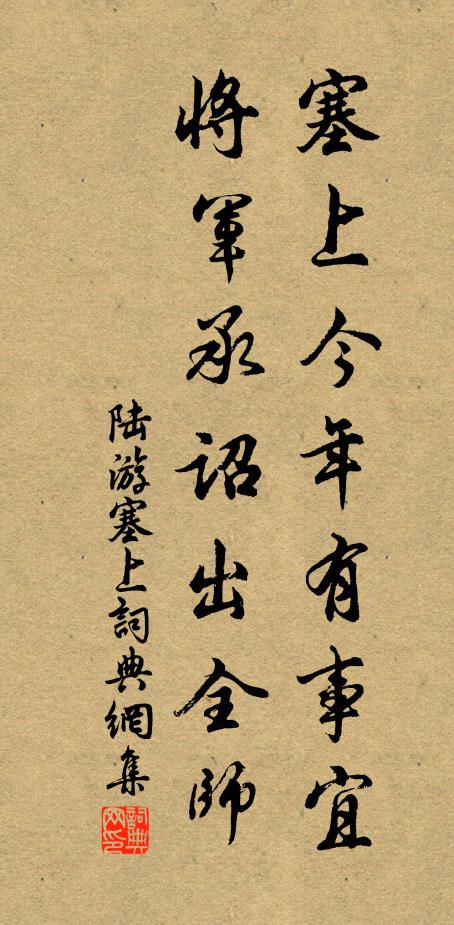 塞上今年有事宜
將軍承詔出全師
陆游塞上詞典網集
詞典网印